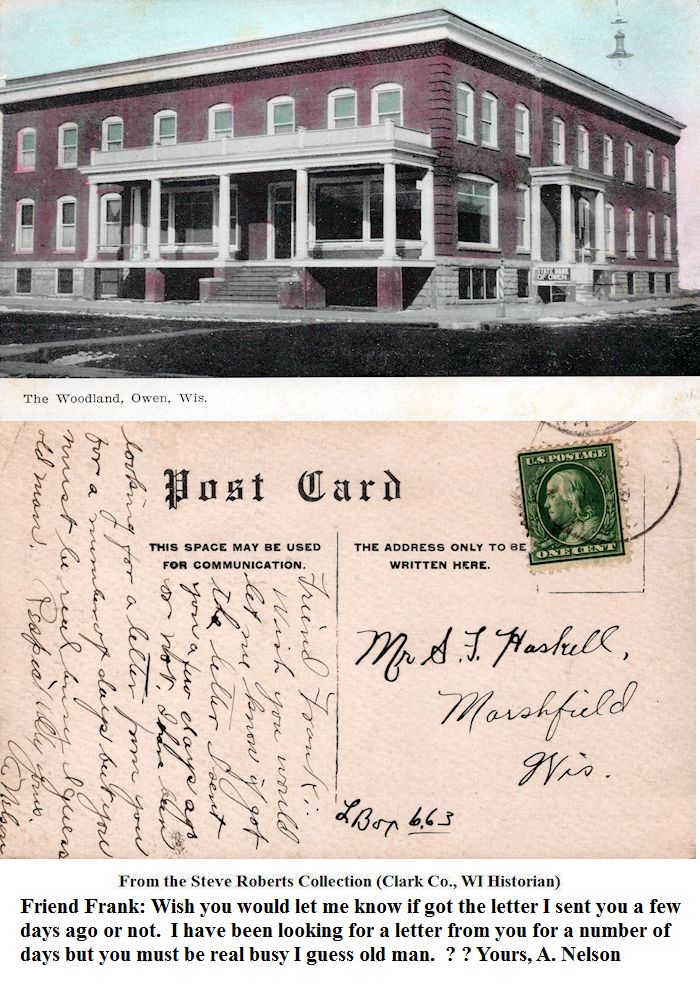 STATE BANK
OF OWEN
The Woodland, Owen, Wis.
Post Card
THIS SPACE MAY BE USED
FOR COMMUNICATION.
THE ADDRESS ONLY TO BE
WRITTEN HERE.
U.S. POSTAGE
ONE CENT
Mr S. F. Haskell,
Marshfield
Wis.
L Box 663
Friend Frank:
Wish you would
let me know if got
the letter I sent
you a few days ago
or not. I have been
looking for a letter from you
for a number of days but you
must be real busy I guess
old man. Respectfully yours,
A. Nelson
From the Steve Roberts Collection (Clark Co., WI Historian)
Friend Frank: Wish you would let me know if got the letter I sent you a few
days ago or not.  I have been looking for a letter from you for a number of
days but you must be real busy I guess old man.  ? ? Yours, A. Nelson